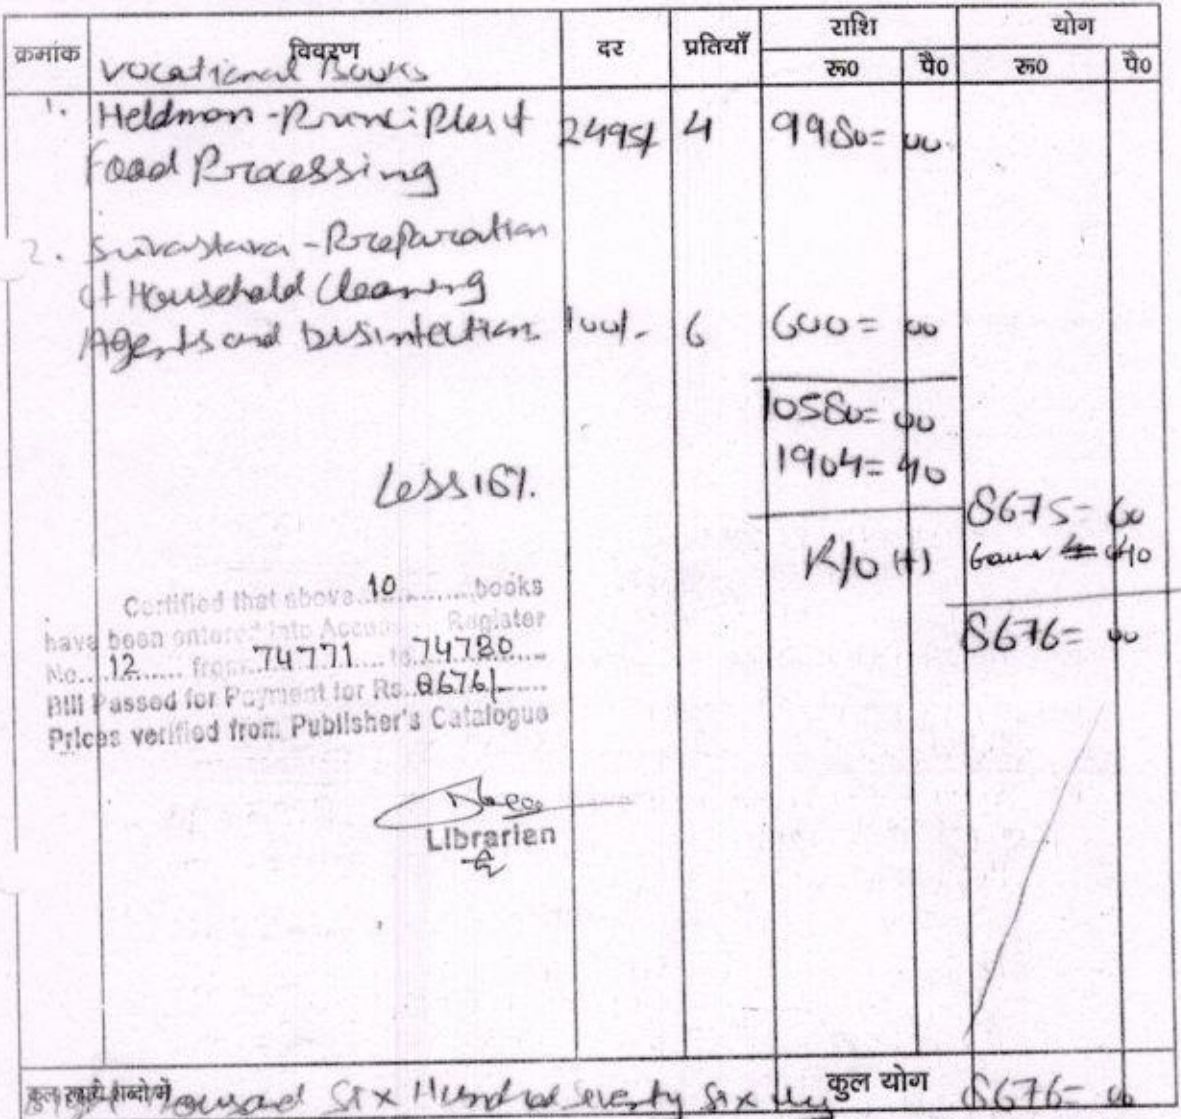 क्रमांक विवरण दर प्रतियाँ राशि योग
रू० पै० रू० पै०
Vocational Books
1. Heldman - Principles of 2495/ 4 9980= 00
Food Processing
2. Srivastava - Preparation
of Household Cleaning
Agents and Disinfection 100/- 6 600= 00
10580= 00
Less 18% 1904= 40
8675= 60
R/o (+) 40
8676= 00
Certified that above 10 books
have been entered into Register
No. 12 from 74771 to 74780
Bill Passed for Payment for Rs. 8676/-
Prices verified from Publisher's Catalogue
Librarien
कुल रुपये शब्दों में Thousand Six Hundred Seventy Six कुल योग 8676= 00